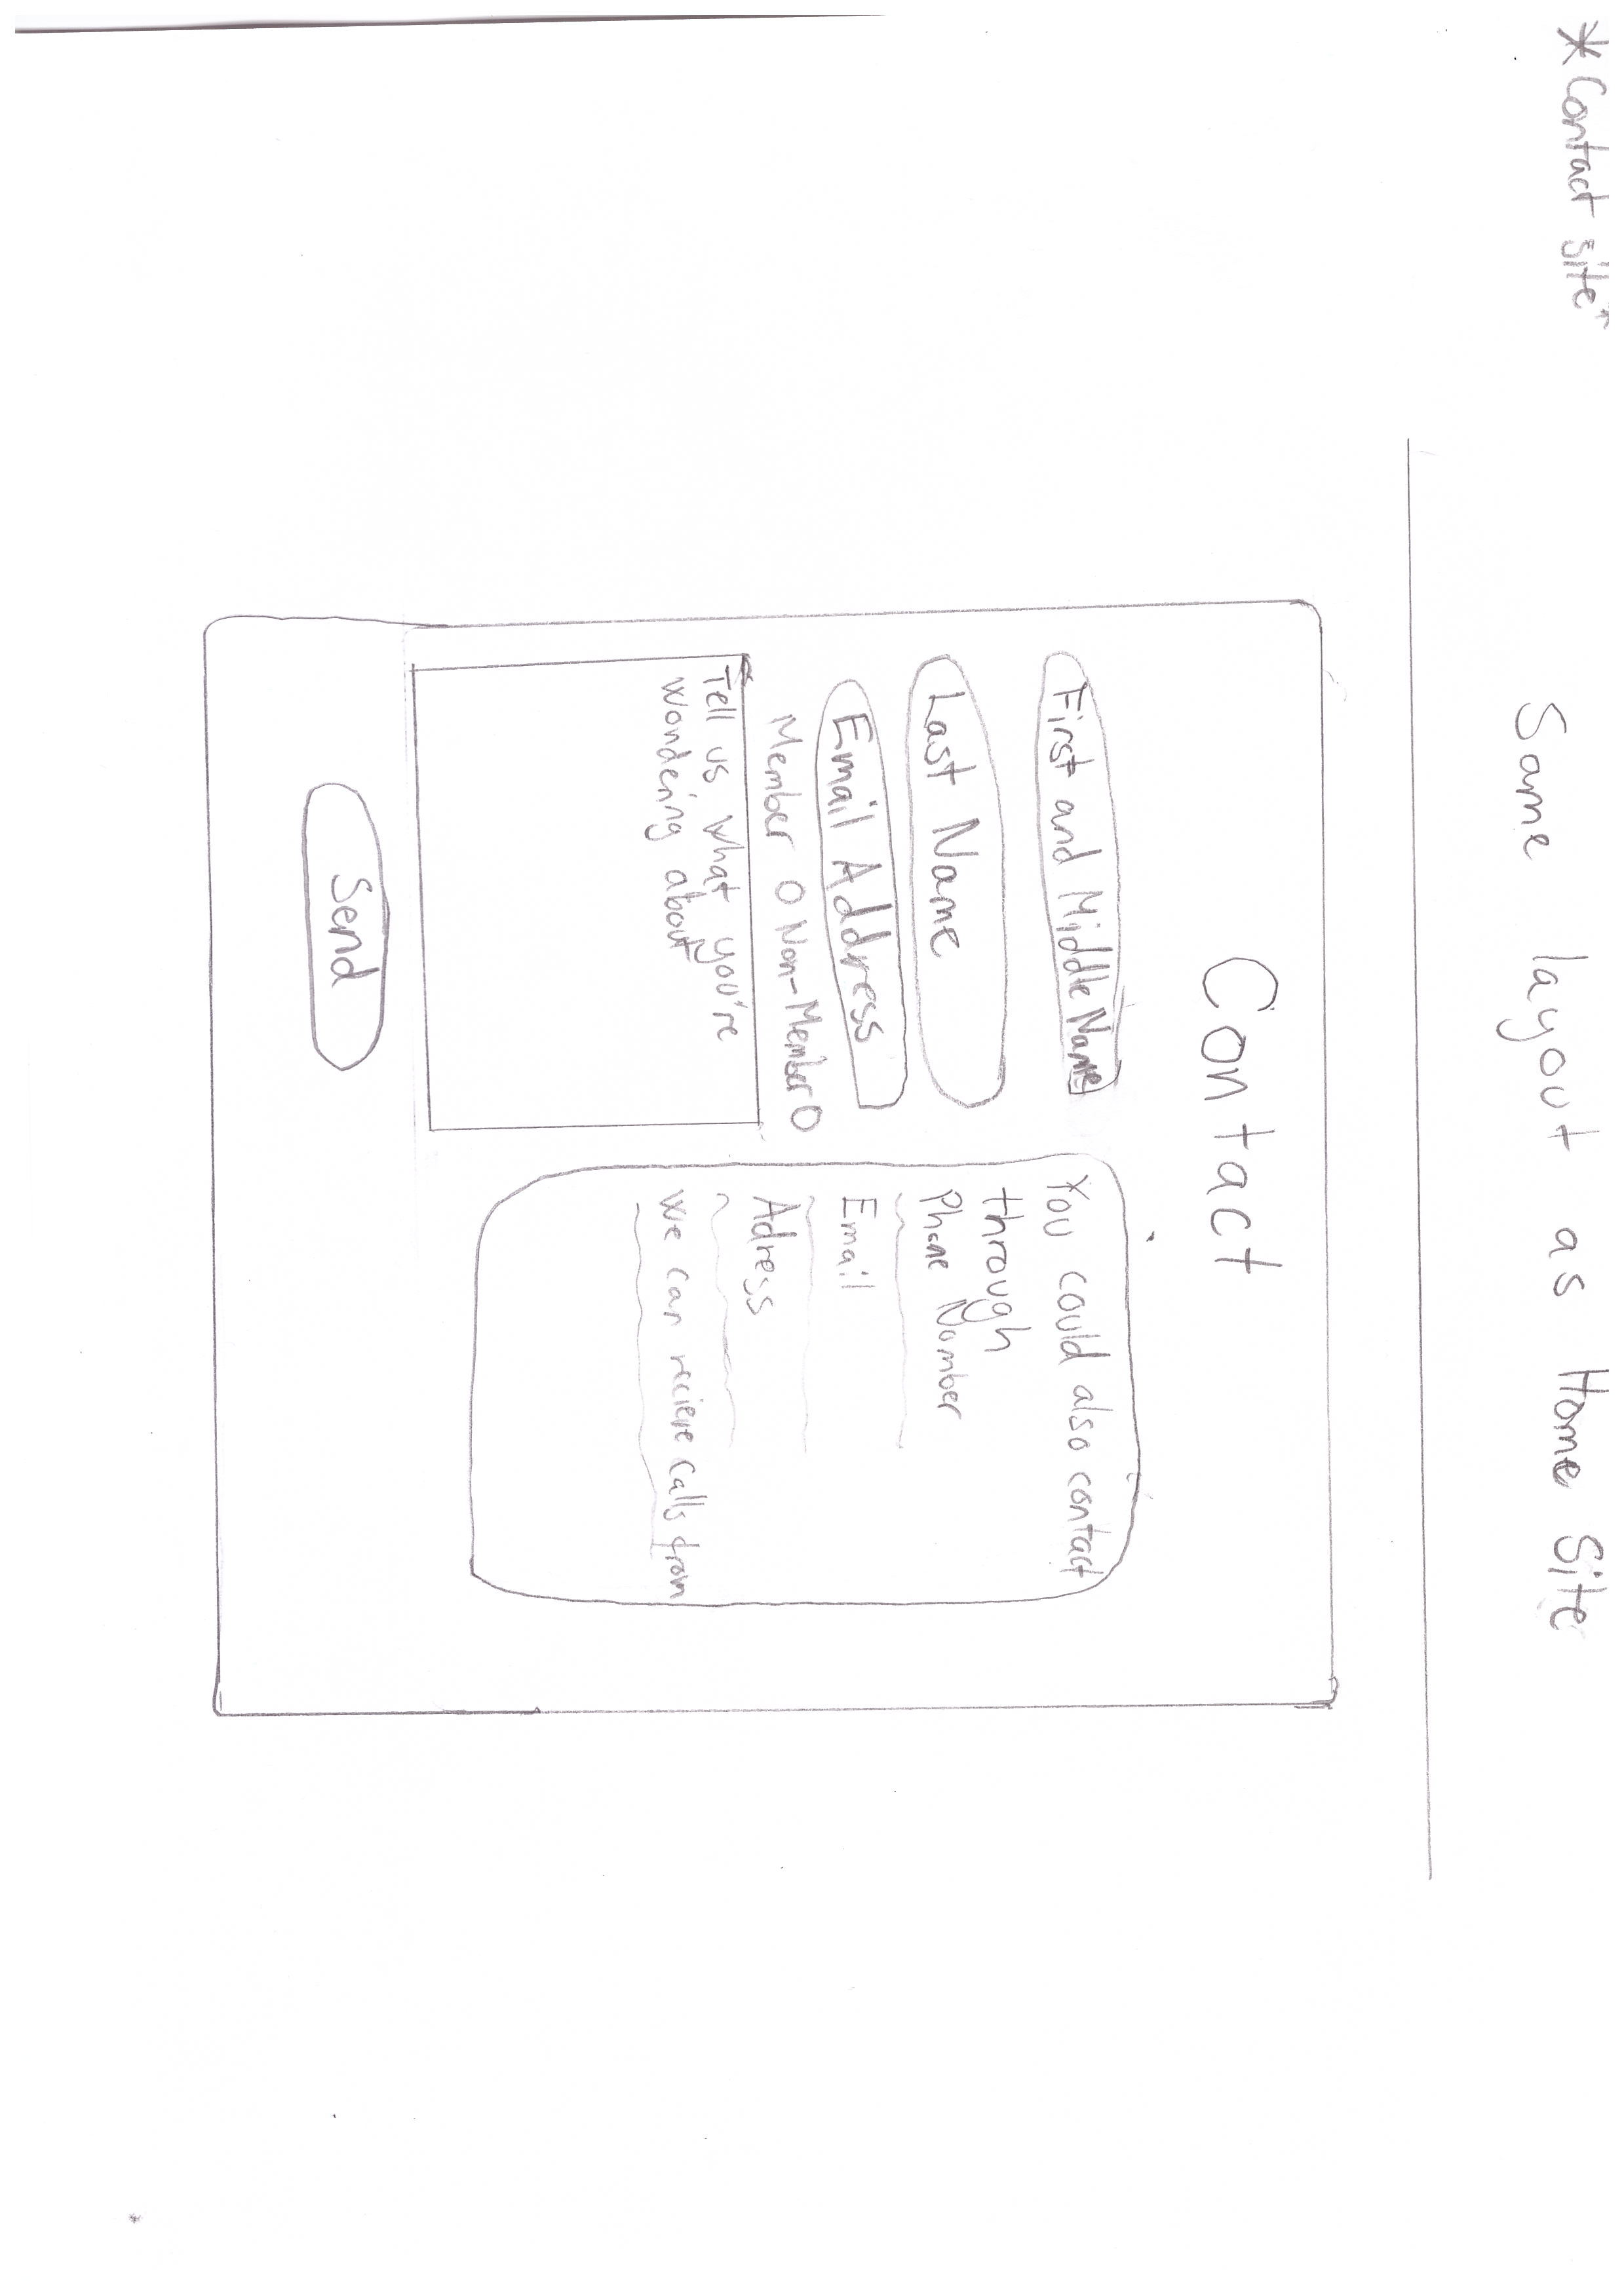 *Contact site*
Same layout as Home Site
Contact
First and Middle Name
Last Name
Email Address
Member O Non-Member O
Tell us what you're
wondering about
Send
You could also contact
through
Phone Number
Email
Adress
we can recieve calls from